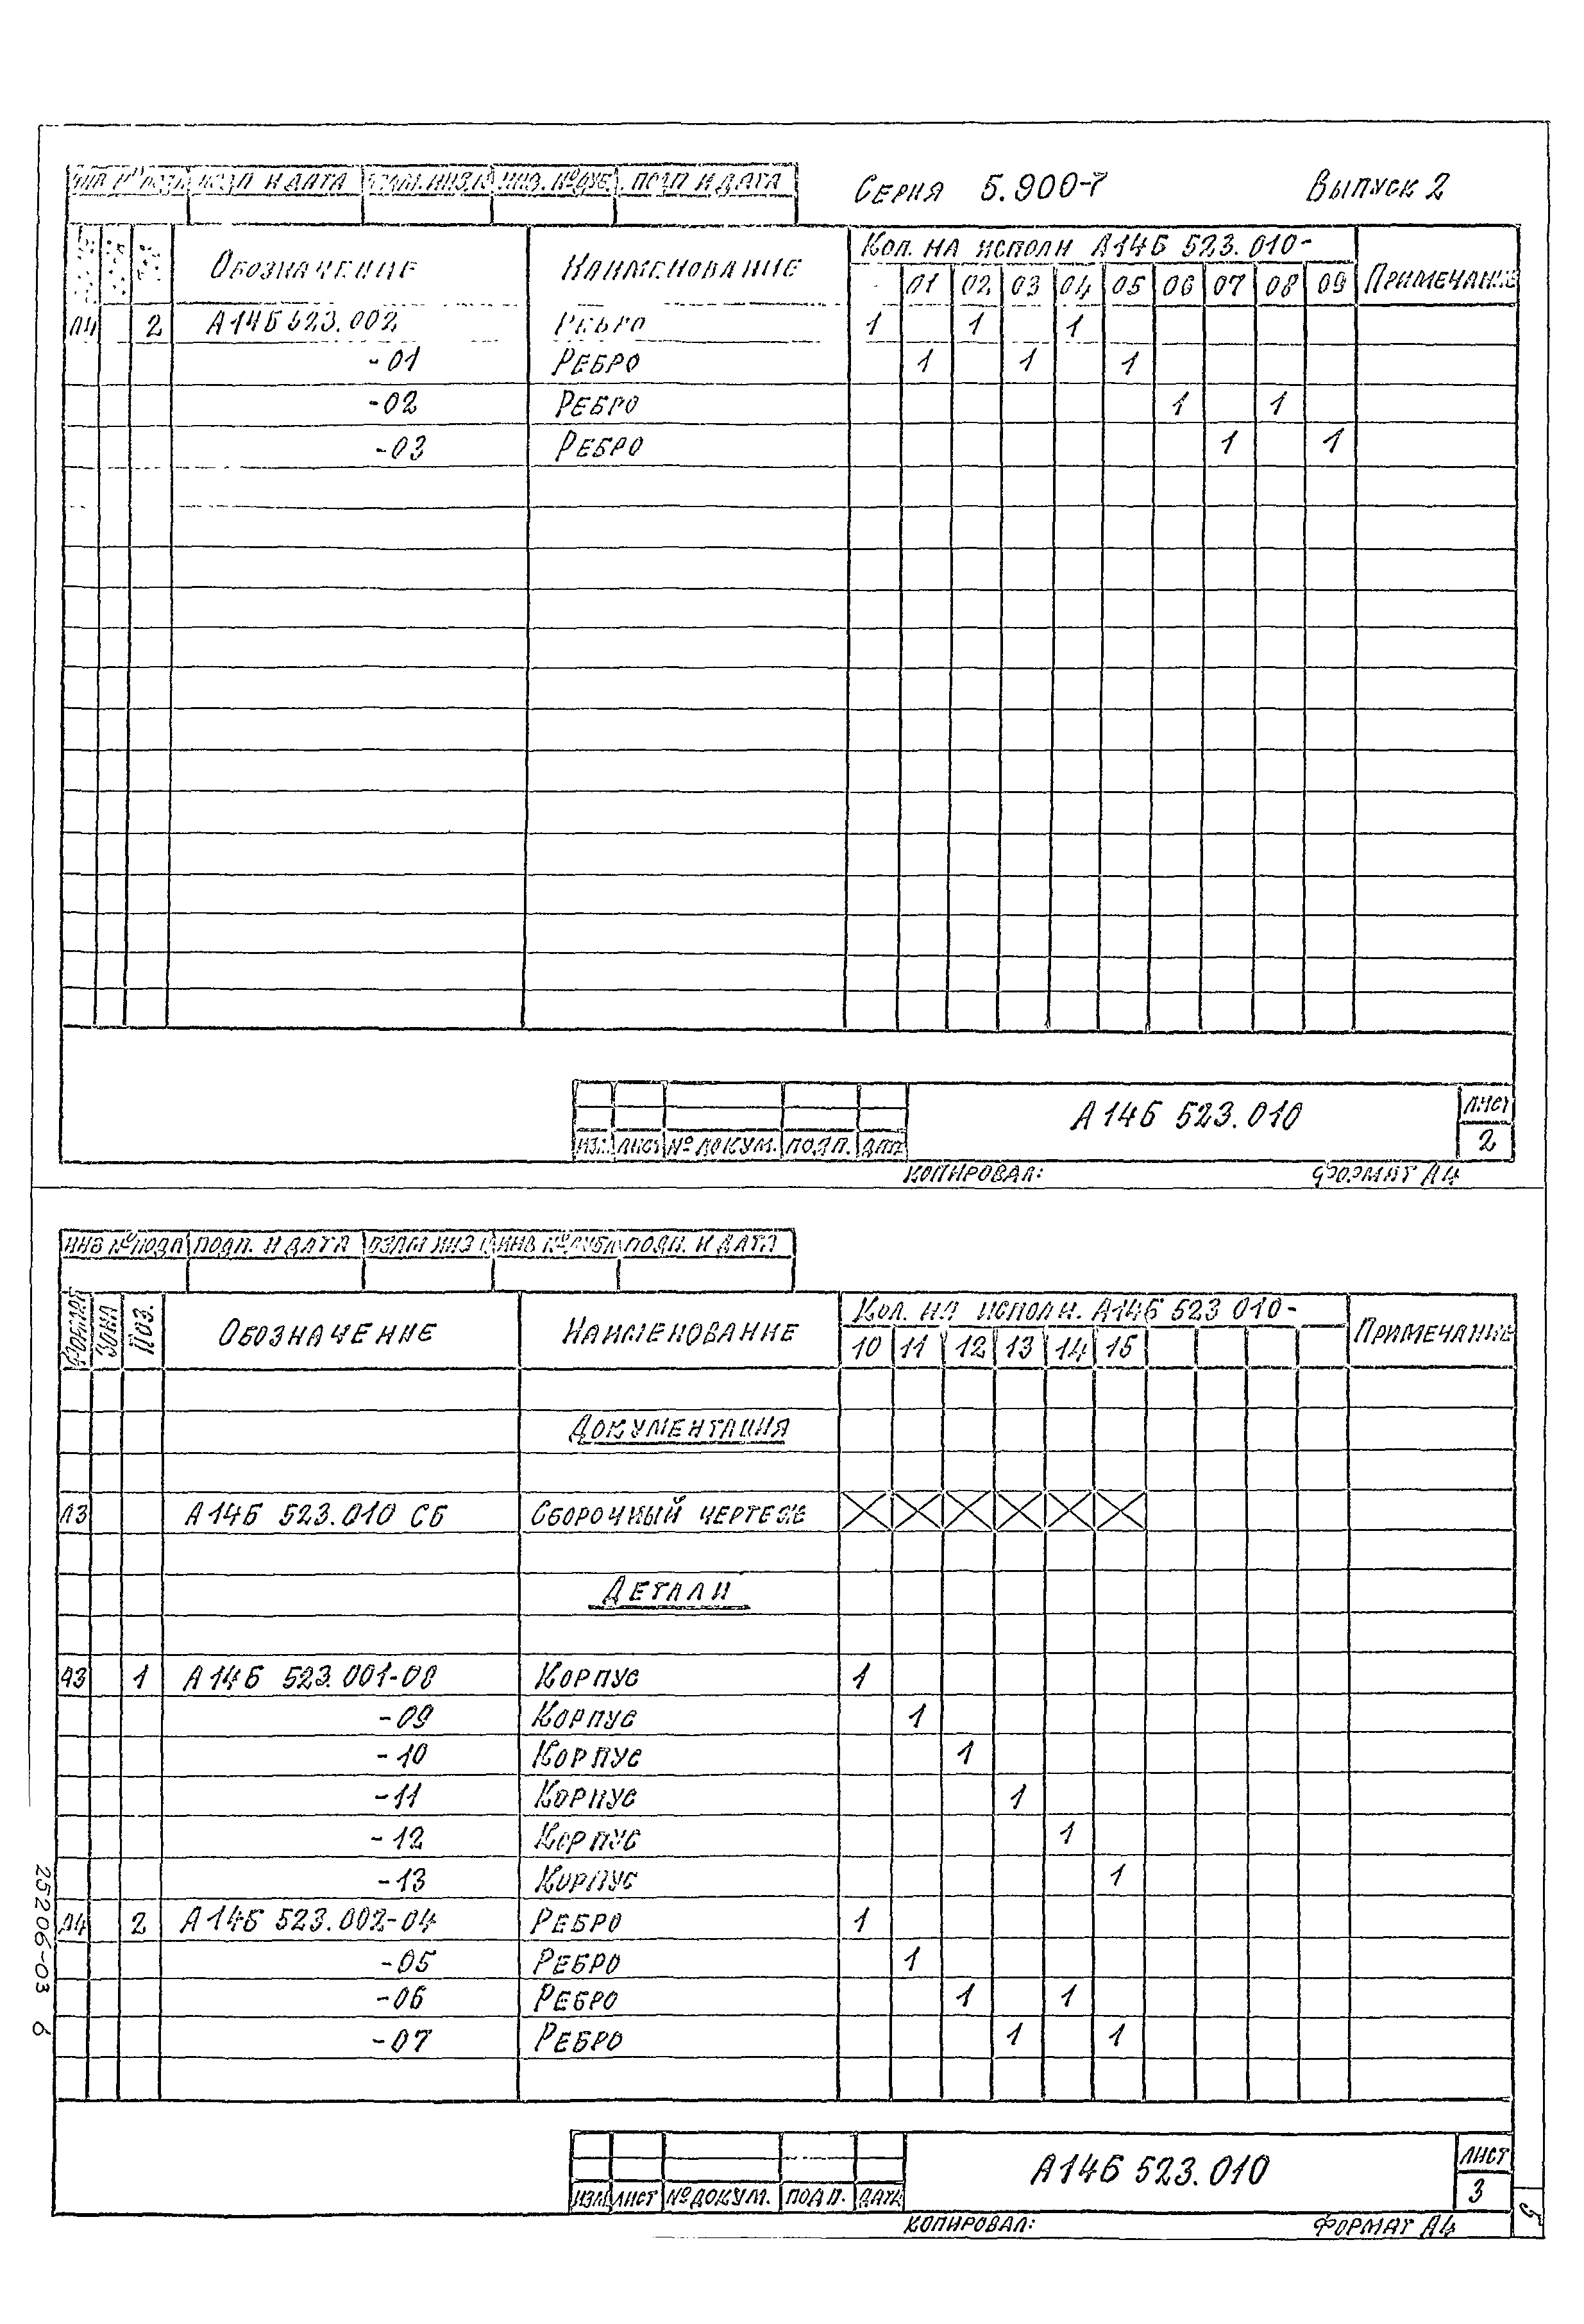 Серия 5.900-7 Выпуск 2
Подп и дата Инв. № дуб. Подп и дата
Обозначение Наименование Кол. на исполн А14Б 523.010- Примечание
- 01 02 03 04 05 06 07 08 09
А4 2 А14Б 523.002 Ребро 1 1 1
-01 Ребро 1 1 1
-02 Ребро 1 1
-03 Ребро 1 1
А14Б 523.010 Лист
Изм. Лист № докум. Подп. Дата 2
Копировал: Формат А4
Инв № подл Подп. и дата Взам инв Инв № дубл Подп. и дата
Формат Зона Поз. Обозначение Наименование Кол. на исполн. А14Б 523 010- Примечание
10 11 12 13 14 15
Документация
А3 А14Б 523.010 СБ Сборочный чертеж
Детали
А3 1 А14Б 523.001-08 Корпус 1
-09 Корпус 1
-10 Корпус 1
-11 Корпус 1
-12 Корпус 1
-13 Корпус 1
А4 2 А14Б 523.002-04 Ребро 1
-05 Ребро 1
-06 Ребро 1 1
-07 Ребро 1 1
А14Б 523.010 Лист
Изм Лист № докум. Подп. Дата 3
Копировал: Формат А4
25206-03 6
5